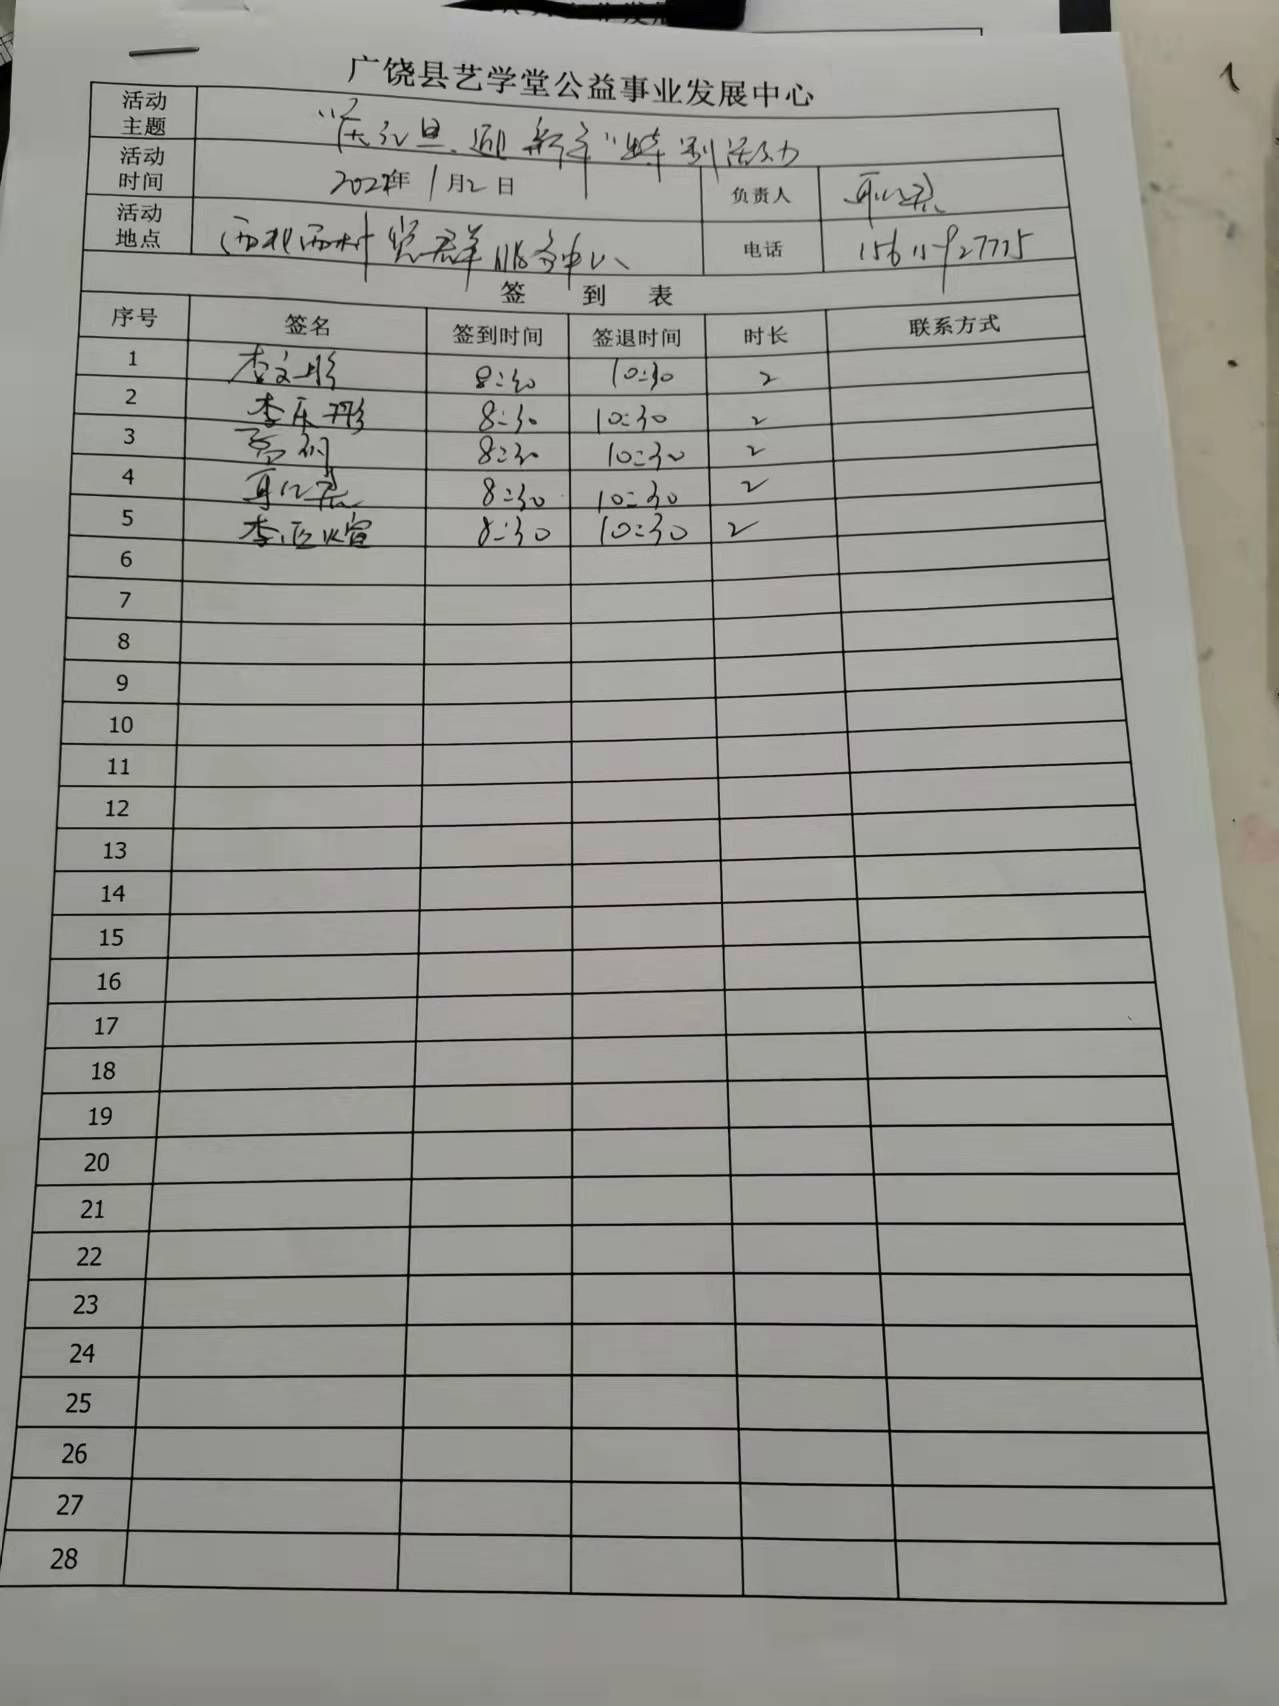 广饶县艺学堂公益事业发展中心
活动主题 "庆元旦、迎新年"特别活动
活动时间 2022年1月2日 负责人
活动地点 西北西村党群服务中心 电话 15611927775
签 到 表
序号 签名 签到时间 签退时间 时长 联系方式
1 李文彤 8:30 10:30 2
2 李乐彤 8:30 10:30 2
3 8:30 10:30 2
4 8:30 10:30 2
5 李 8:30 10:30 2
6
7
8
9
10
11
12
13
14
15
16
17
18
19
20
21
22
23
24
25
26
27
28